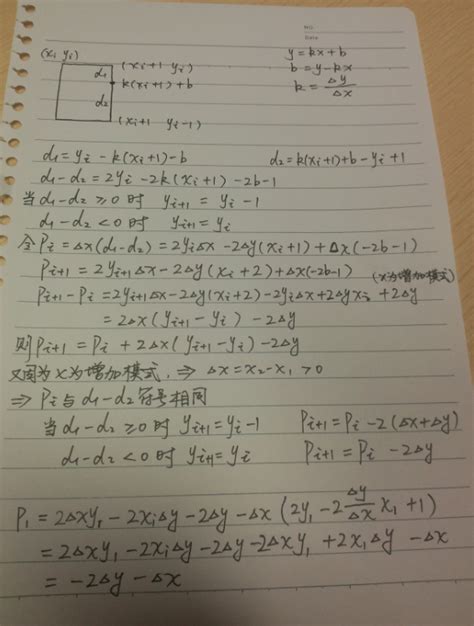 NO.
Date
(xi yi)
(xi+1 yi)
y=kx+b
d1
k(xi+1)+b
b=y-kx
d2
k=Δy/Δx
(xi+1 yi-1)
d1=yi-k(xi+1)-b d2=k(xi+1)+b-yi+1
d1-d2=2yi-2k(xi+1)-2b-1
当d1-d2≥0时 yi+1=yi-1
d1-d2<0时 yi+1=yi
令Pi=Δx(d1-d2)=2yiΔx-2Δy(xi+1)+Δx(-2b-1)
Pi+1=2yi+1Δx-2Δy(xi+2)+Δx(-2b-1)
(x为增加模式)
Pi+1-Pi=2yi+1Δx-2Δy(xi+2)-2yiΔx+2Δyxi+2Δy
=2Δx(yi+1-yi)-2Δy
则Pi+1=Pi+2Δx(yi+1-yi)-2Δy
又因为x为增加模式,⇒Δx=x2-x1>0
⇒Pi与d1-d2符号相同
当d1-d2≥0时 yi+1=yi-1 Pi+1=Pi-2(Δx+Δy)
d1-d2<0时 yi+1=yi Pi+1=Pi-2Δy
P1=2Δxy1-2x1Δy-2Δy-Δx(2y1-2Δy/Δx x1+1)
=2Δxy1-2x1Δy-2Δy-2Δxy1+2x1Δy-Δx
=-2Δy-Δx